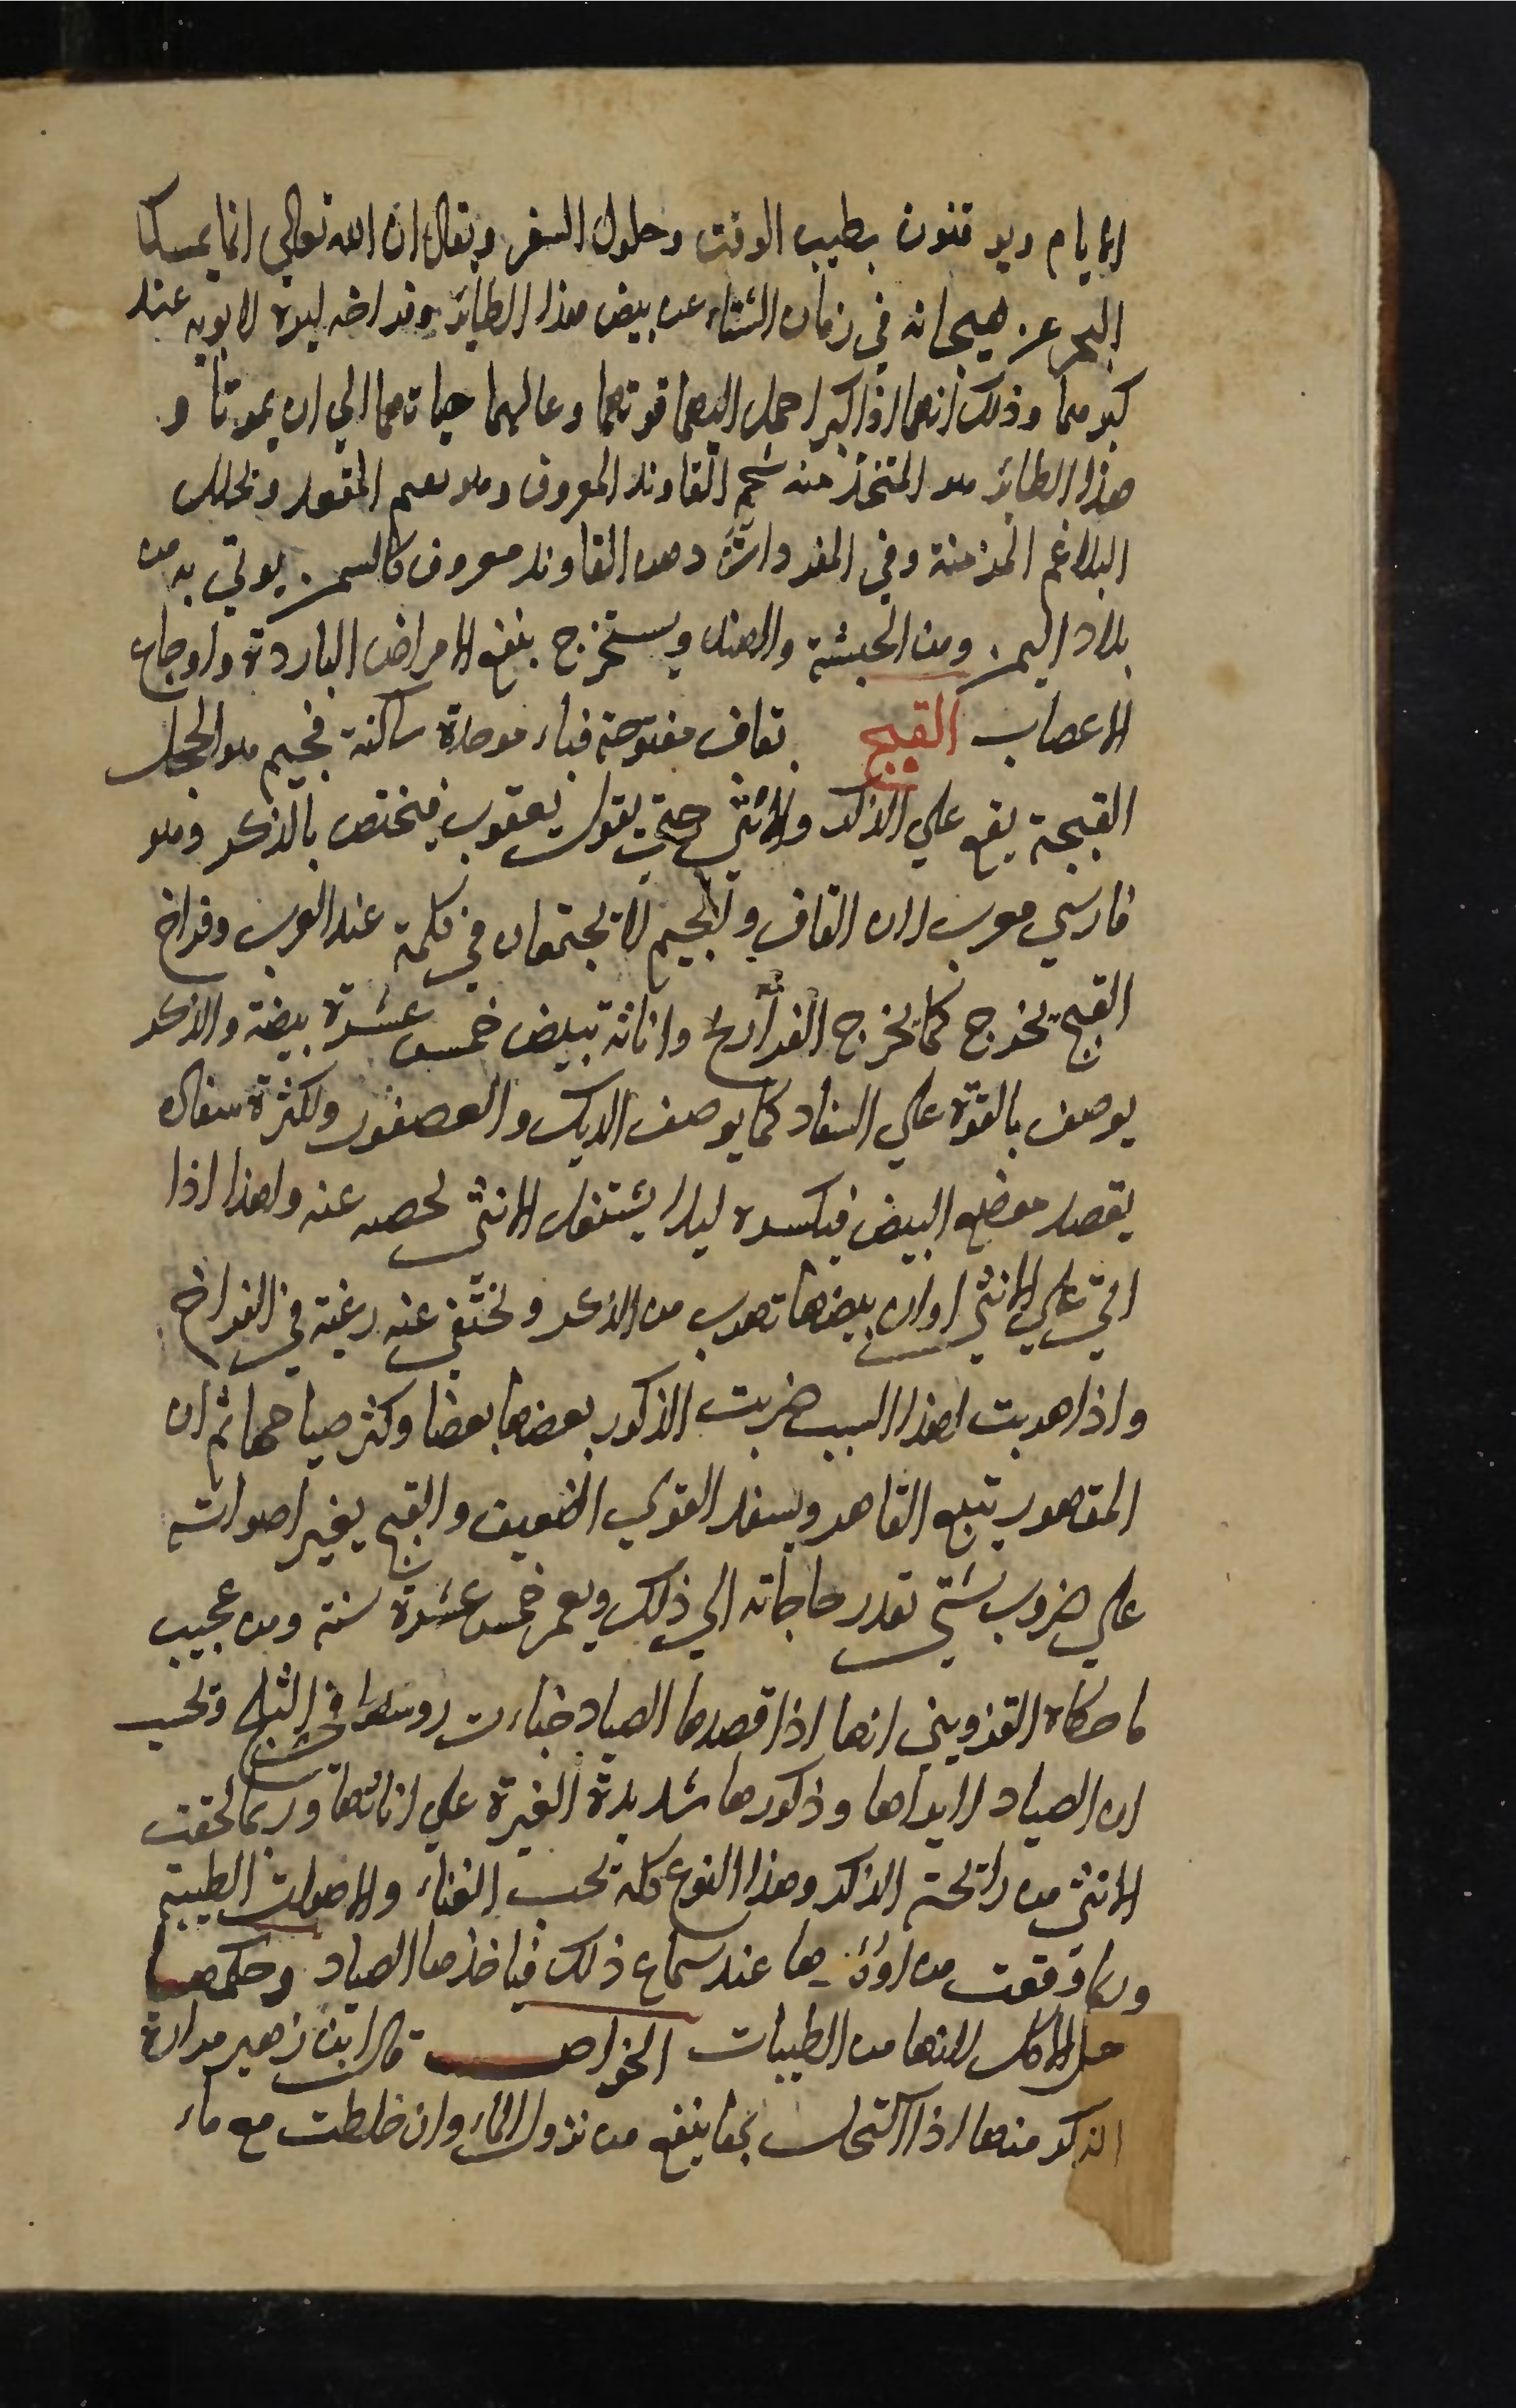 الايام ويوقنون بطيب الوقت وحلول السفر ويقال ان الله تعالي انما يمسك
البحر عن هيجانه في زمان الشتاء عن بيض هذا الطائر وفراخه لبره لابويه عند
كبرهما وذلك انهما اذا كبرا حمل اليهما قوتهما وعالهما حياتهما الي ان يموتا و
هذا الطائر هو المتخذ منه شحم القاوند المعروف وهو يقيم المقعد ويحلل
البلاغم المزمنة وفي المفردات دهن القاوند معروف كالسمن يوتي به من
بلاد اليمن ومن الحبشة والهند ويستخرج ينفع الامراض الباردة واوجاع
الاعصاب القبج بقاف مفتوحة فباء موحدة ساكنة فجيم هو الحجل
القبجة يقع علي الذكر والانثي حتي يقول يعقوب فيختص بالذكر وهو
فارسي معرب لان القاف والجيم لا تجتمعان في كلمة عند العرب وفراخ
القبج تخرج كما يخرج الفراريج واناثه تبيض خمس عشرة بيضة والذكر
يوصف بالقوة علي السفاد كما يوصف الديك والعصفور ولكثرة سفاده
يقصد موضع البيض فيكسره ليلا يشتغل الانثي بحضنه عنه ولهذا اذا
اتي علي الانثي اوان بيضها تهرب من الذكر وتختفي عنه رغبة في الفراخ
واذا هربت لهذا السبب ضربت الذكور بعضها بعضا وكثر صياحها ثم ان
المقهور يتبع القاهر ويسفد القوي الضعيف والقبج يغير اصواته
علي ضروب شتي بقدر حاجاته الي ذلك ويعمر خمس عشرة سنة ومن عجيب
ما حكاه القزويني انها اذا قصدها الصياد خباءت روسها في الثلج وتحسب
ان الصياد لا يراها وذكورها شديدة الغيرة علي اناثها وربما لحقت
الانثي من رائحة الذكر وهذا النوع كله يحب الغناء والاصوات الطيبة
وربما وقعت من اوكارها عند سماع ذلك فياخذها الصياد وحكمها
حل الاكل لانها من الطيبات الخواص قال ابن زهير مرارة
الذكر منها اذا اكتحل بها ينفع من نزول الماء وان خلطت مع ماء